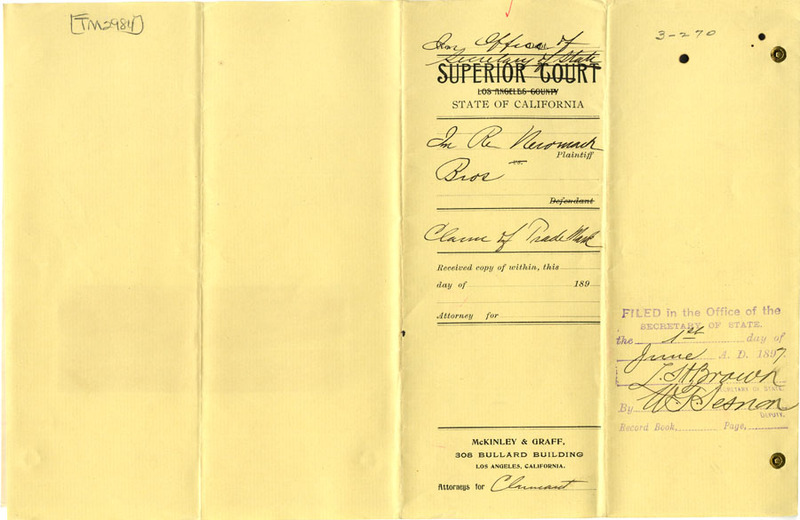 [TM2984]
In Office of
Secretary of State
SUPERIOR COURT
LOS ANGELES COUNTY
STATE OF CALIFORNIA
In Re Neromach
Plaintiff
vs.
Bros
Defendant
Claim of Trade Mark
Received copy of within, this
day of 189
Attorney for
McKINLEY & GRAFF,
308 BULLARD BUILDING
LOS ANGELES, CALIFORNIA.
Attorneys for Claimant
3-270
FILED in the Office of the
SECRETARY OF STATE.
the 1st day of
June A. D. 1897.
L. H. Brown
SECRETARY OF STATE.
By W. T. Sesnon
DEPUTY.
Record Book, Page,